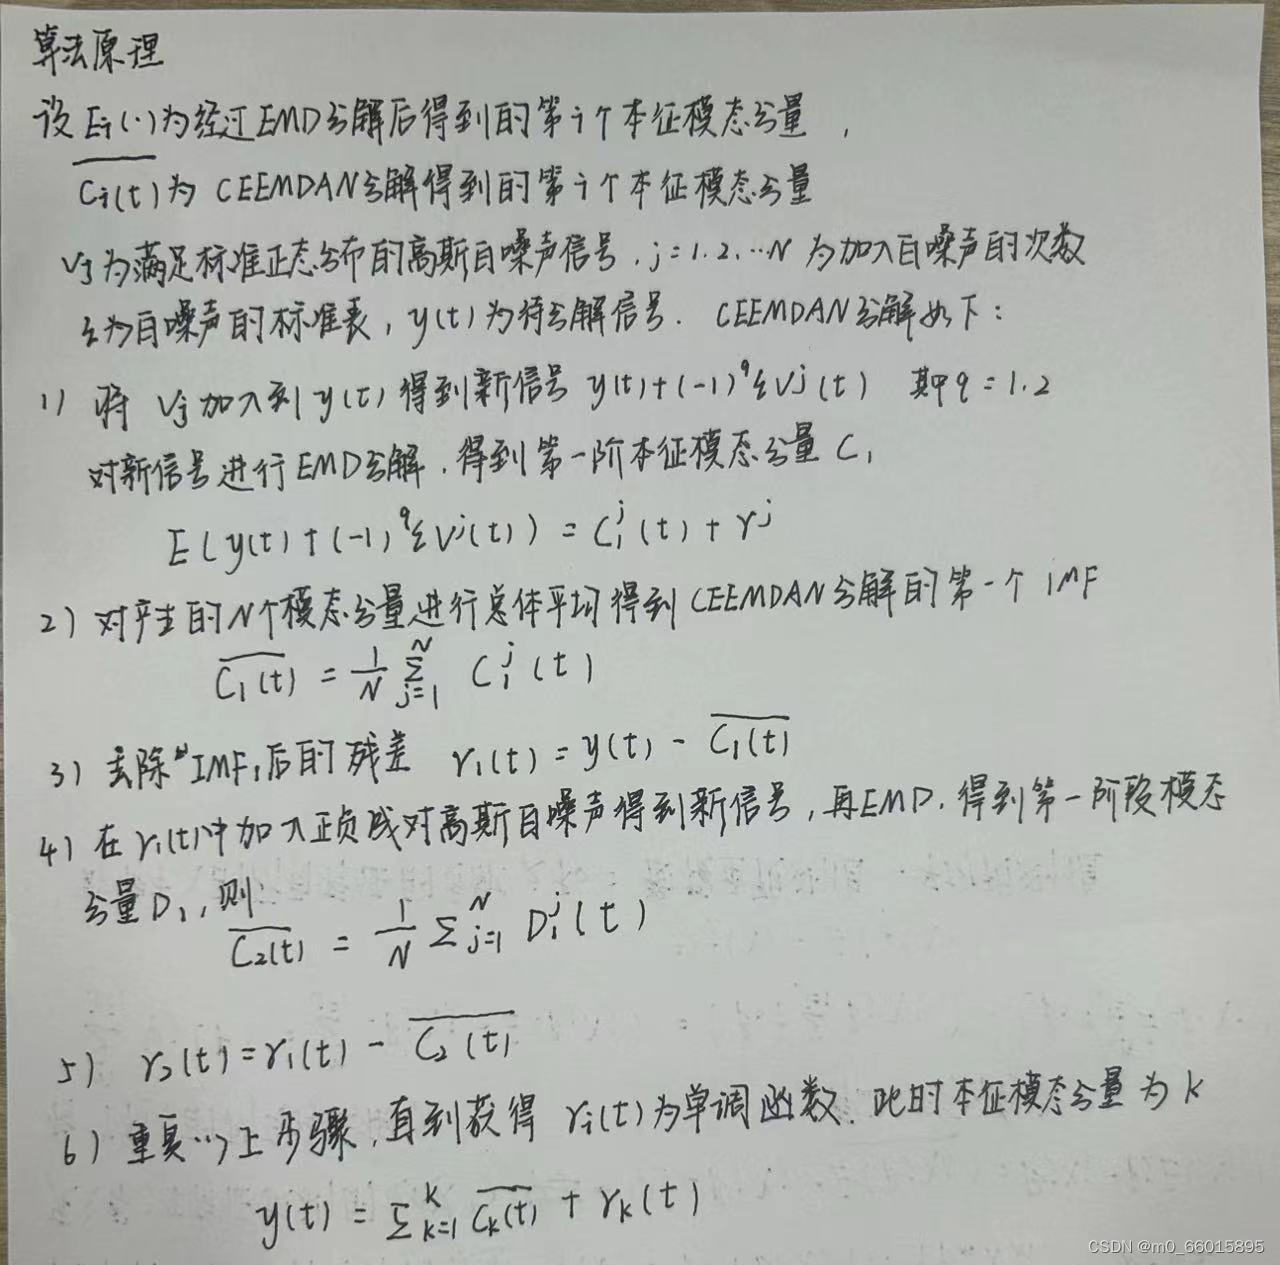 算法原理
设 Ei(·)为经过EMD分解后得到的第i个本征模态分量,
C̅i(t)为 CEEMDAN分解得到的第i个本征模态分量
Vj为满足标准正态分布的高斯白噪声信号, j=1.2.…N 为加入白噪声的次数
ε为白噪声的标准表, y(t)为待分解信号. CEEMDAN分解如下:
1) 将 Vj加入到y(t)得到新信号 y(t)+(-1)^q εV^j(t) 其中q=1.2
对新信号进行EMD分解, 得到第一阶本征模态分量 C₁
E(y(t)+(-1)^q εV^j(t)) = C₁^j(t) + r^j
2) 对产生的N个模态分量进行总体平均得到CEEMDAN分解的第一个 IMF
\overline{C₁(t)} = \frac{1}{N} Σ_{j=1}^{N} C₁^j(t)
3) 去除IMF₁后的残差 r₁(t) = y(t) - \overline{C₁(t)}
4) 在 r₁(t)中加入正负成对高斯白噪声得到新信号, 再EMD, 得到第一阶段模态
分量D₁, 则:
\overline{C₂(t)} = \frac{1}{N} Σ_{j=1}^{N} D₁^j(t)
5) r₂(t)=r₁(t) - \overline{C₂(t)}
6) 重复以上步骤, 直到获得 ri(t)为单调函数. 此时本征模态分量为 K
y(t) = Σ_{k=1}^{K} \overline{Ck(t)} + rk(t)
CSDN @m0_66015895